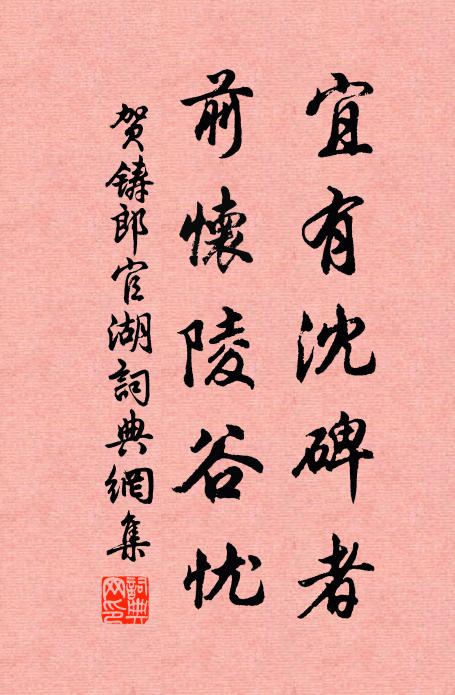 宜有沈碑者
前懷陵谷忧
贺鑄郎官湖詞典網集
詞典网印